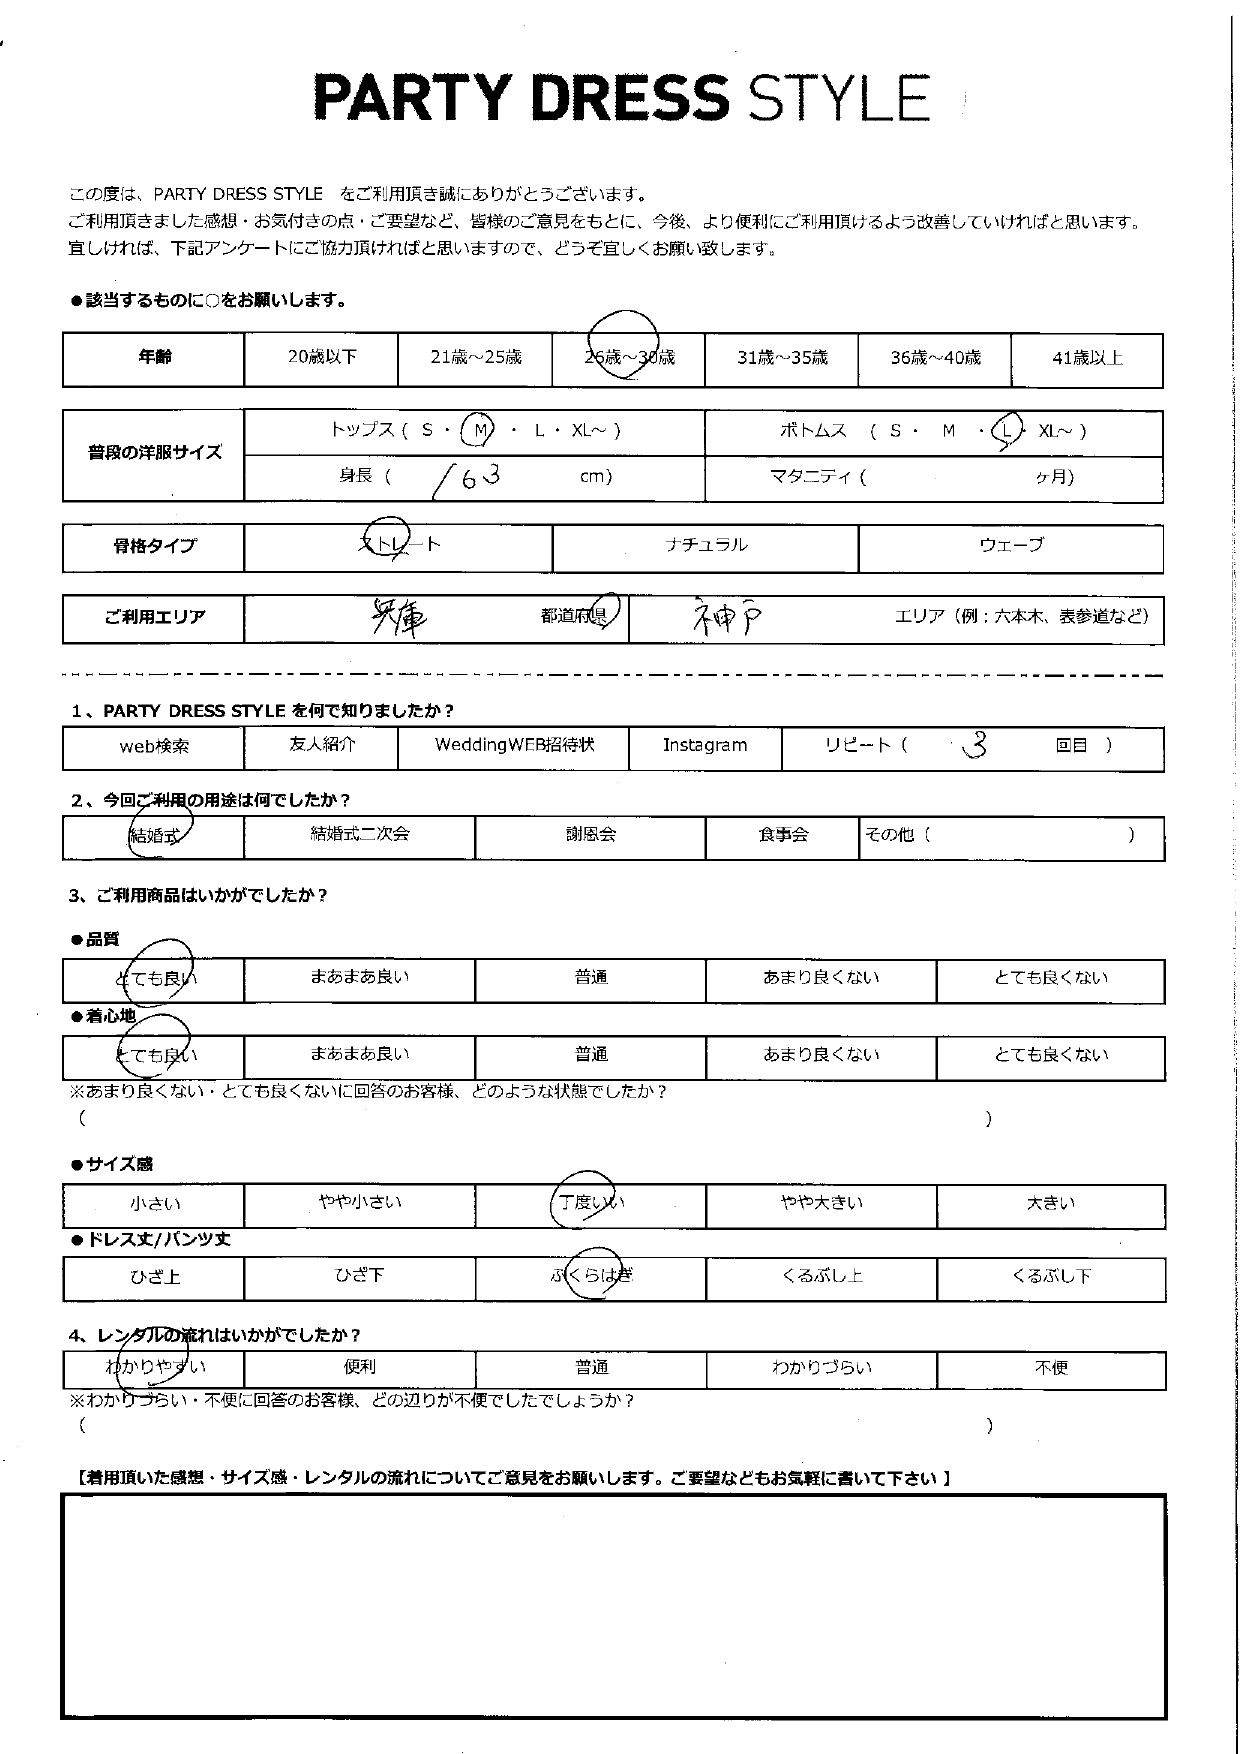 PARTY DRESS STYLE
この度は、PARTY DRESS STYLE をご利用頂き誠にありがとうございます。
ご利用頂きました感想・お気付きの点・ご要望など、皆様のご意見をもとに、今後、より便利にご利用頂けるよう改善していければと思います。
宜しければ、下記アンケートにご協力頂ければと思いますので、どうぞ宜しくお願い致します。
●該当するものに○をお願いします。
年齢 20歳以下 21歳～25歳 26歳～30歳 31歳～35歳 36歳～40歳 41歳以上
普段の洋服サイズ トップス ( S ・ M ・ L ・ XL～ ) ボトムス ( S ・ M ・ L ・ XL～ )
身長 ( 163 cm) マタニティ ( ヶ月)
骨格タイプ ストレート ナチュラル ウェーブ
ご利用エリア 兵庫 都道府県 神戸 エリア（例：六本木、表参道など）
1、PARTY DRESS STYLE を何で知りましたか？
web検索 友人紹介 WeddingWEB招待状 Instagram リピート ( 3 回目 )
2、今回ご利用の用途は何でしたか？
結婚式 結婚式二次会 謝恩会 食事会 その他 ( )
3、ご利用商品はいかがでしたか？
●品質
とても良い まあまあ良い 普通 あまり良くない とても良くない
●着心地
とても良い まあまあ良い 普通 あまり良くない とても良くない
※あまり良くない・とても良くないに回答のお客様、どのような状態でしたか？
( )
●サイズ感
小さい やや小さい 丁度いい やや大きい 大きい
●ドレス丈/パンツ丈
ひざ上 ひざ下 ふくらはぎ くるぶし上 くるぶし下
4、レンタルの流れはいかがでしたか？
わかりやすい 便利 普通 わかりづらい 不便
※わかりづらい・不便に回答のお客様、どの辺りが不便でしたでしょうか？
( )
【着用頂いた感想・サイズ感・レンタルの流れについてご意見をお願いします。ご要望などもお気軽に書いて下さい 】